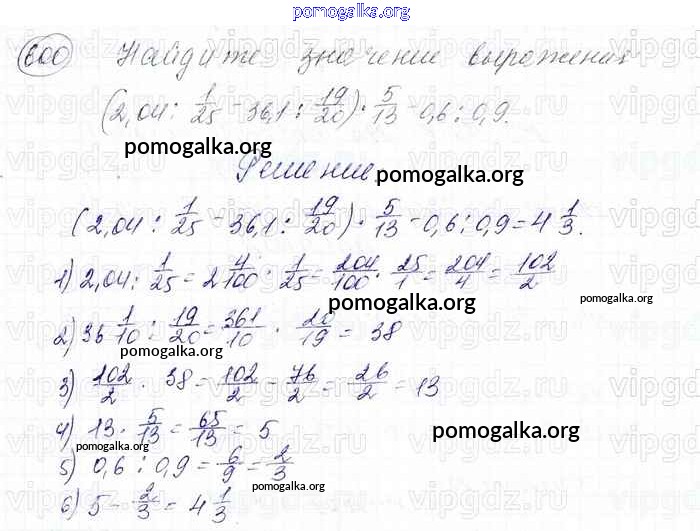 pomogalka.org
600 Найдите значение выражения
(2,04 : 1/25 - 36,1 : 19/20) · 5/13 - 0,6 : 0,9.
pomogalka.org
Решение
pomogalka.org
(2,04 : 1/25 - 36,1 : 19/20) · 5/13 - 0,6 : 0,9 = 4 1/3.
1) 2,04 : 1/25 = 2 4/100 · 1/25 = 204/100 · 25/1 = 204/4 = 102/2
pomogalka.org
pomogalka.org
2) 36 1/10 : 19/20 = 361/10 · 20/19 = 38
pomogalka.org
3) 102/2 · 38 = 102/2 - 76/2 = 26/2 = 13
4) 13 · 5/13 = 65/13 = 5
pomogalka.org
pomogalka.org
5) 0,6 : 0,9 = 6/9 = 2/3
pomogalka.org
6) 5 - 2/3 = 4 1/3
pomogalka.org